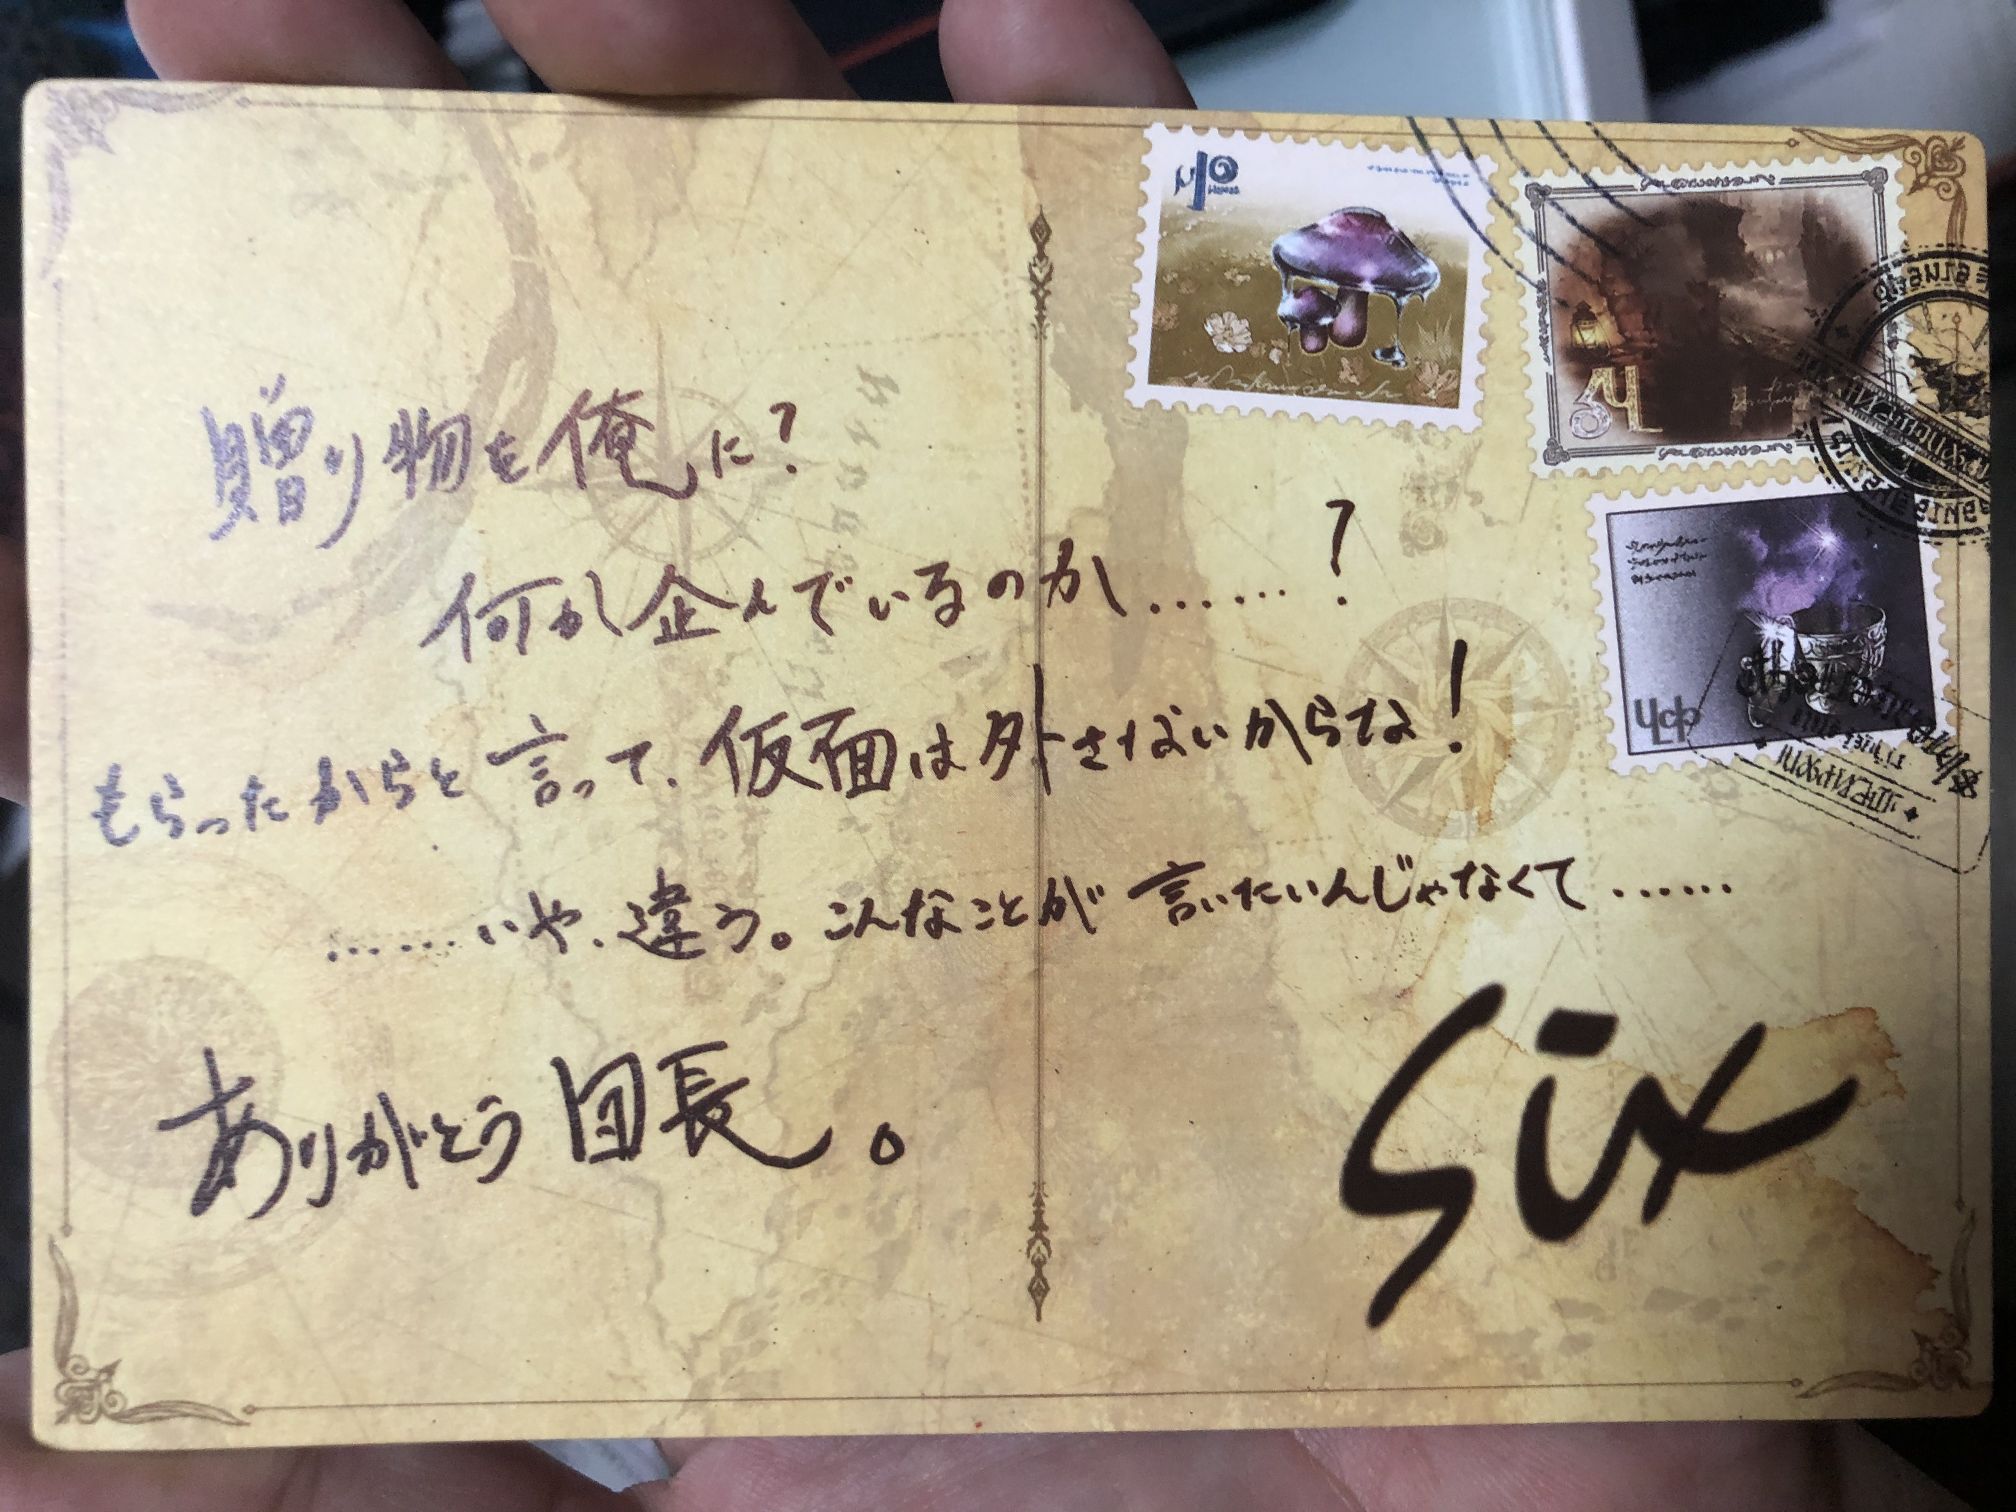 贈り物を俺に?
何か企んでいるのか……?
もらったからと言って、仮面は外さないからな!
……いや、違う。こんなことが言いたいんじゃなくて……
ありがとう団長。
Six